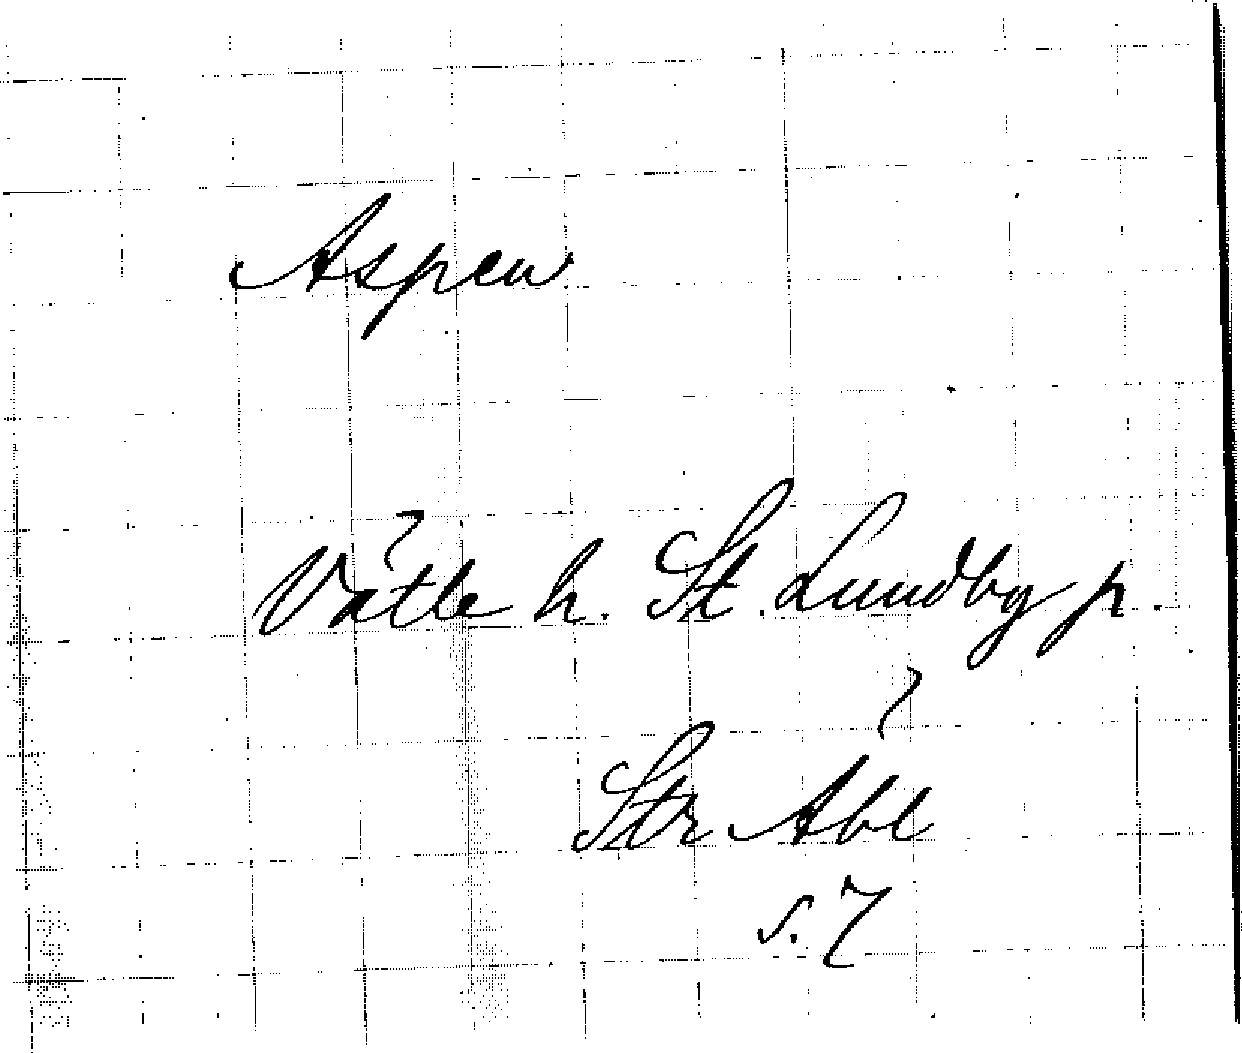 Aspen
Vätle h. St. Lundby p.
Str Åbl
s. 7